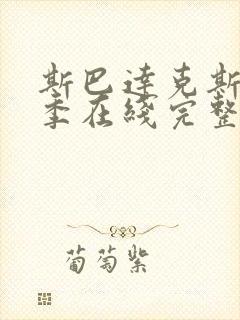 斯巴達克斯
季在綫完整
葡萄紫